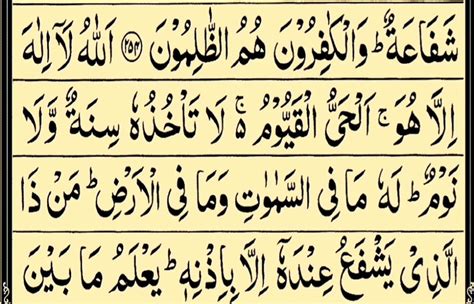 شَفَاعَةٌ ؕ وَالْكٰفِرُوْنَ هُمُ الظّٰلِمُوْنَ ﴿۲۵۴﴾ اَللّٰهُ لَاۤ اِلٰهَ
اِلَّا هُوَ ۚ اَلْحَیُّ الْقَیُّوْمُ ۬ۚ لَا تَاْخُذُهٗ سِنَةٌ وَّلَا
نَوْمٌ ؕ لَهٗ مَا فِی السَّمٰوٰتِ وَمَا فِی الْاَرْضِ ؕ مَنْ ذَا
الَّذِیْ یَشْفَعُ عِنْدَهٗۤ اِلَّا بِاِذْنِهٖ ؕ یَعْلَمُ مَا بَیْنَ